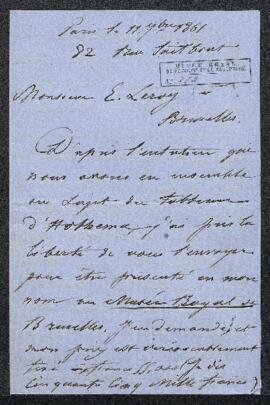 Paris le 11 9bre 1861
82 Rue Taitbout
MUSÉE ROYAL
DE PEINTURE ET DE SCULPTURE
Monsieur E. Leroy
Bruxelles.
D'après l'entretien que
nous avons eu ensemble
au sujet du tableau
d'Hobbema, j'ai pris la
liberté de vous l'envoyer
pour être présenté en mon
nom au Musée Royal de
Bruxelles. J'en demande, et
mon prix est irrévocablement
fixé
Cinquante Cinq Mille francs